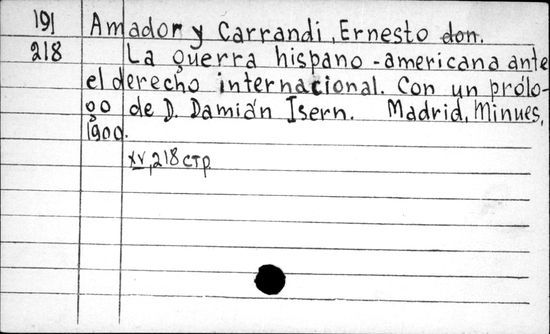 191 Amador y Carrandi, Ernesto don.
218 La guerra hispano-americana ante
el derecho internacional. Con un prólo-
go de D. Damián Isern. Madrid, Minues,
1900.
XV, 218 стр